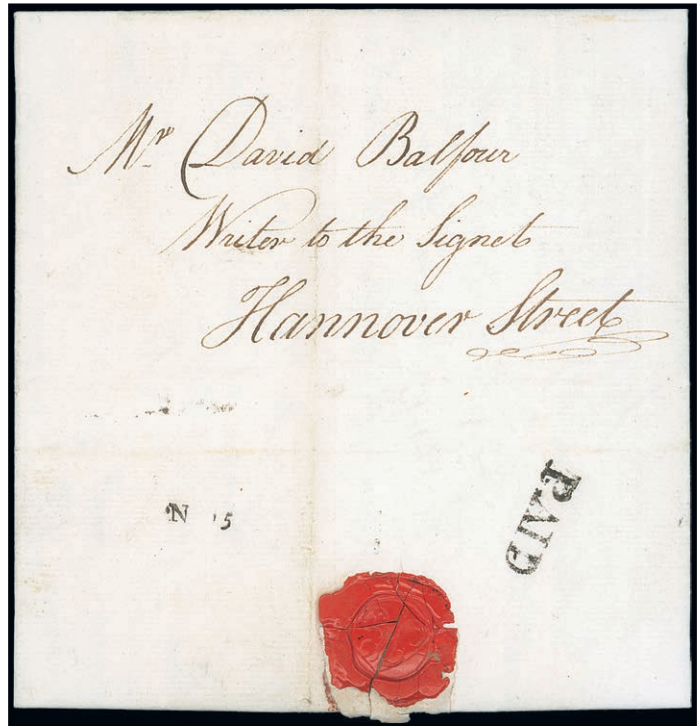 Mr David Balfour
Writer to the Signet
Hannover Street
PAID
N 15